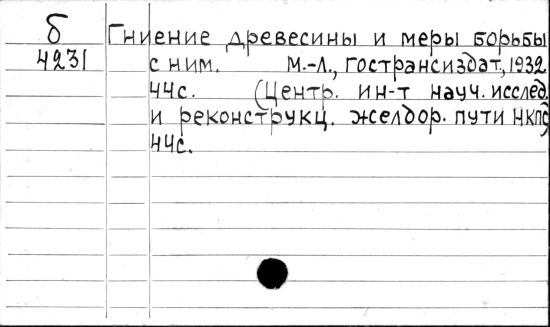 Б Гниение древесины и меры борьбы
4231 с ним. М.-Л., Гострансиздат, 1932
44с. (Центр. ин-т науч. исслед.
и реконструкц. желдор. пути НКПС)
44с.